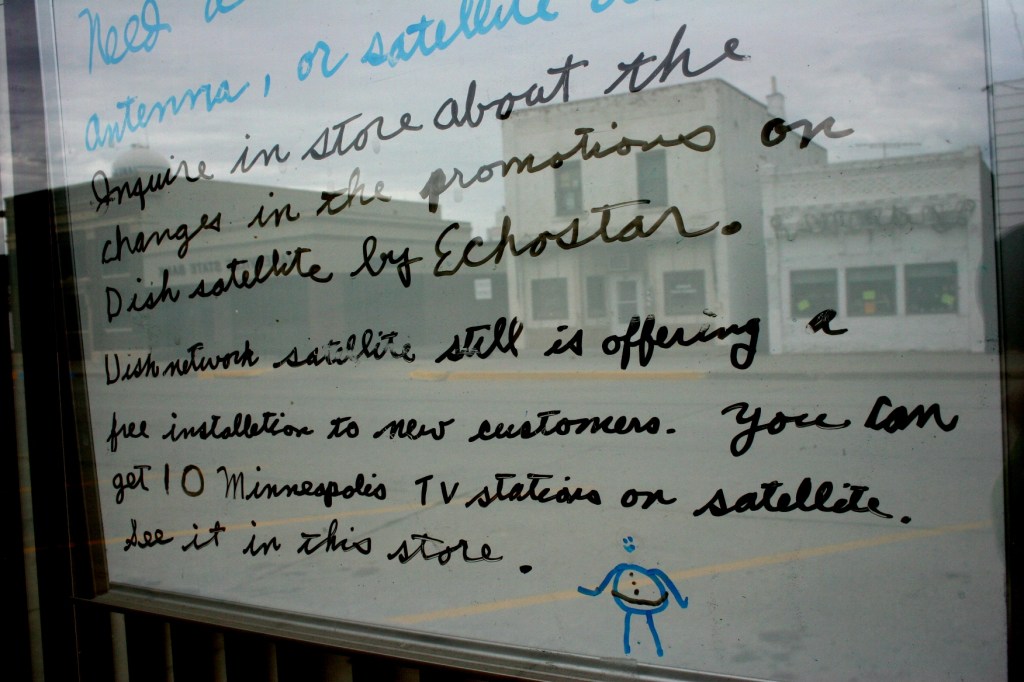 Need a
antenna, or satellite
Inquire in store about the
changes in the promotions on
Dish satellite by Echostar.
Dish network satellite still is offering a
free installetion to new customers. You can
get 10 Minneapolis TV stations on satellite.
See it in this store.
STATE BAN